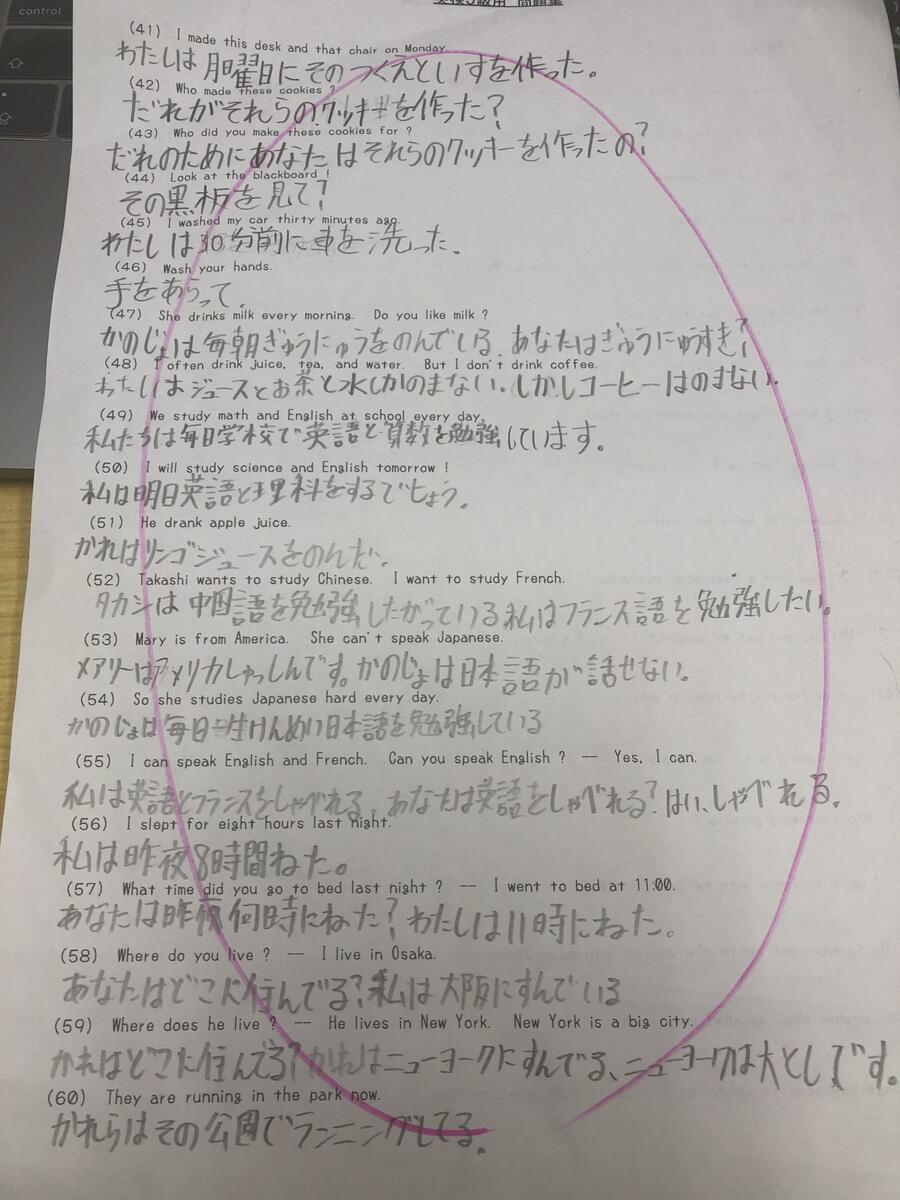 control
英検5級用 問題集
(41) I made this desk and that chair on Monday.
わたしは月曜日にそのつくえといすを作った。
(42) Who made these cookies ?
だれがそれらのクッキーを作った?
(43) Who did you make these cookies for ?
だれのためにあなたはそれらのクッキーを作ったの?
(44) Look at the blackboard !
その黒板を見て!
(45) I washed my car thirty minutes ago.
わたしは30分前に車を洗った.
(46) Wash your hands.
手をあらって.
(47) She drinks milk every morning. Do you like milk ?
かのじょは毎朝ぎゅうにゅうをのんでいる.あなたはぎゅうにゅうすき?
(48) I often drink juice, tea, and water. But I don't drink coffee.
わたしはジュースとお茶と水しかのまない.しかしコーヒーはのまない.
(49) We study math and English at school every day.
私たちは毎日学校で英語と算数を勉強しています。
(50) I will study science and English tomorrow !
私は明日英語と理科をするでしょう。
(51) He drank apple juice.
かれはリンゴジュースをのんだ.
(52) Takashi wants to study Chinese. I want to study French.
タカシは中国語を勉強したがっている私はフランス語を勉強したい。
(53) Mary is from America. She can't speak Japanese.
メアリーはアメリカしゅっしんです。かのじょは日本語が話せない。
(54) So she studies Japanese hard every day.
かのじょは毎日一生けんめい日本語を勉強している
(55) I can speak English and French. Can you speak English ? -- Yes, I can.
私は英語とフランスをしゃべれる.あなたは英語をしゃべれる?はい、しゃべれる。
(56) I slept for eight hours last night.
私は昨夜8時間ねた。
(57) What time did you go to bed last night ? -- I went to bed at 11:00.
あなたは昨夜何時にねた?わたしは11時にねた。
(58) Where do you live ? -- I live in Osaka.
あなたはどこに住んでる?私は大阪にすんでいる
(59) Where does he live ? -- He lives in New York. New York is a big city.
かれはどこに住んでる?かれはニューヨークにすんでる、ニューヨークは大としです。
(60) They are running in the park now.
かれらはその公園でランニングしてる.